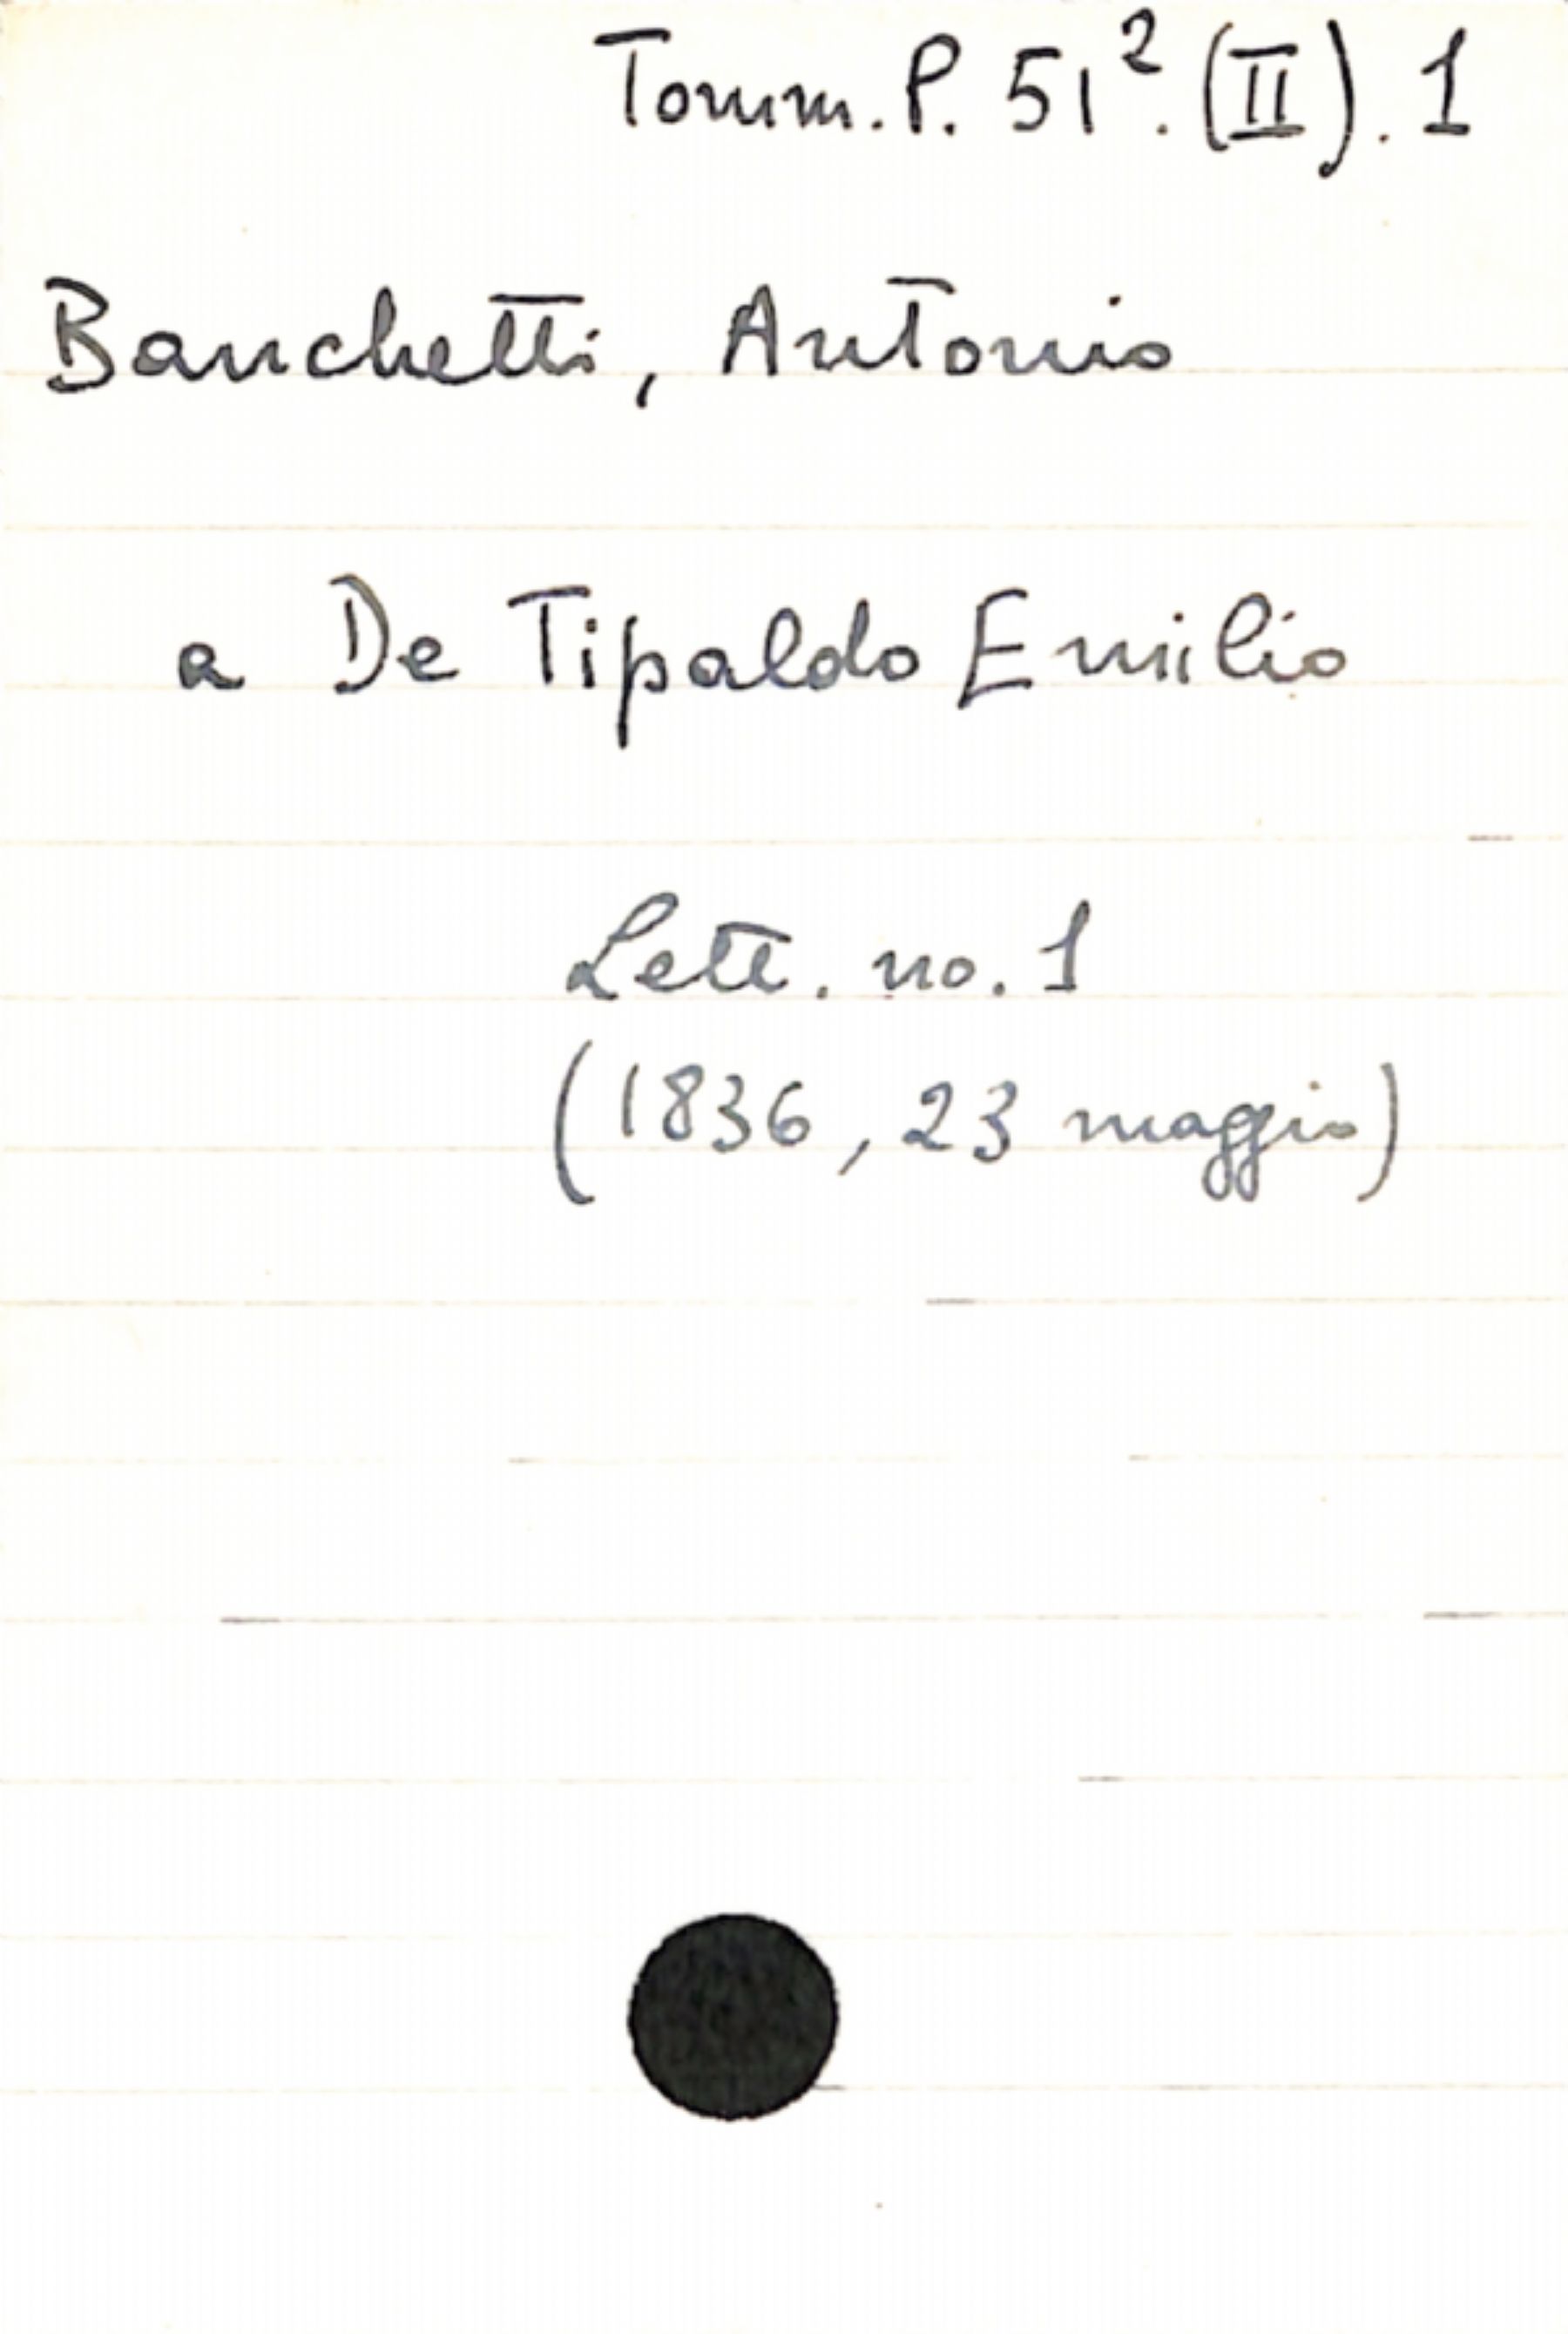 Tomm. P. 51². (II). 1
Banchetti, Antonio
a De Tipaldo Emilio
Lett. no. 1
(1836, 23 maggio)